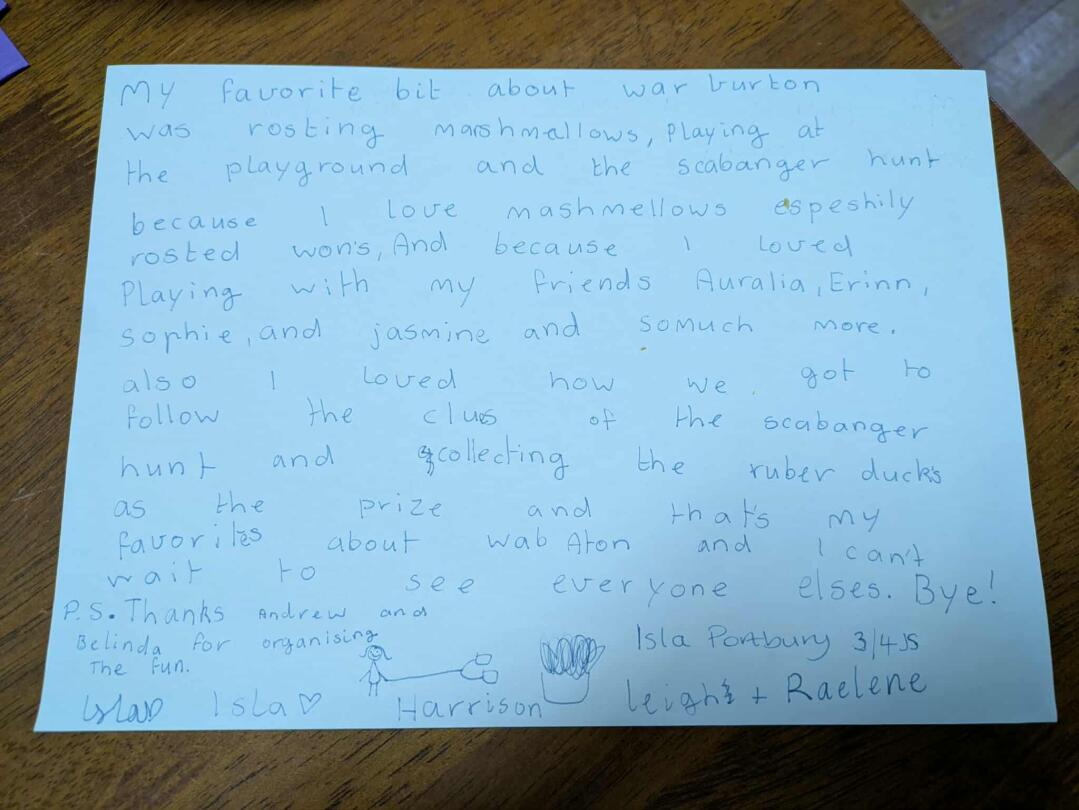 My favorite bit about war burton
was rosting marshmallows, playing at
the playground and the scabanger hunt
because I love mashmellows espeshily
rosted won's, And because I loved
Playing with my friends Auralia, Erinn,
sophie, and jasmine and somuch more.
also I loved how we got to
follow the clues of the scabanger
hunt and collecting the ruber duck's
as the prize and that's my
favorites about wab Aton and I can't
wait to see everyone elses. Bye!
P.S. Thanks Andrew and
Belinda for organising
The fun.
Isla Portbury 3/4JS
Isla♡ Isla♡ Harrison Leigh + Raelene